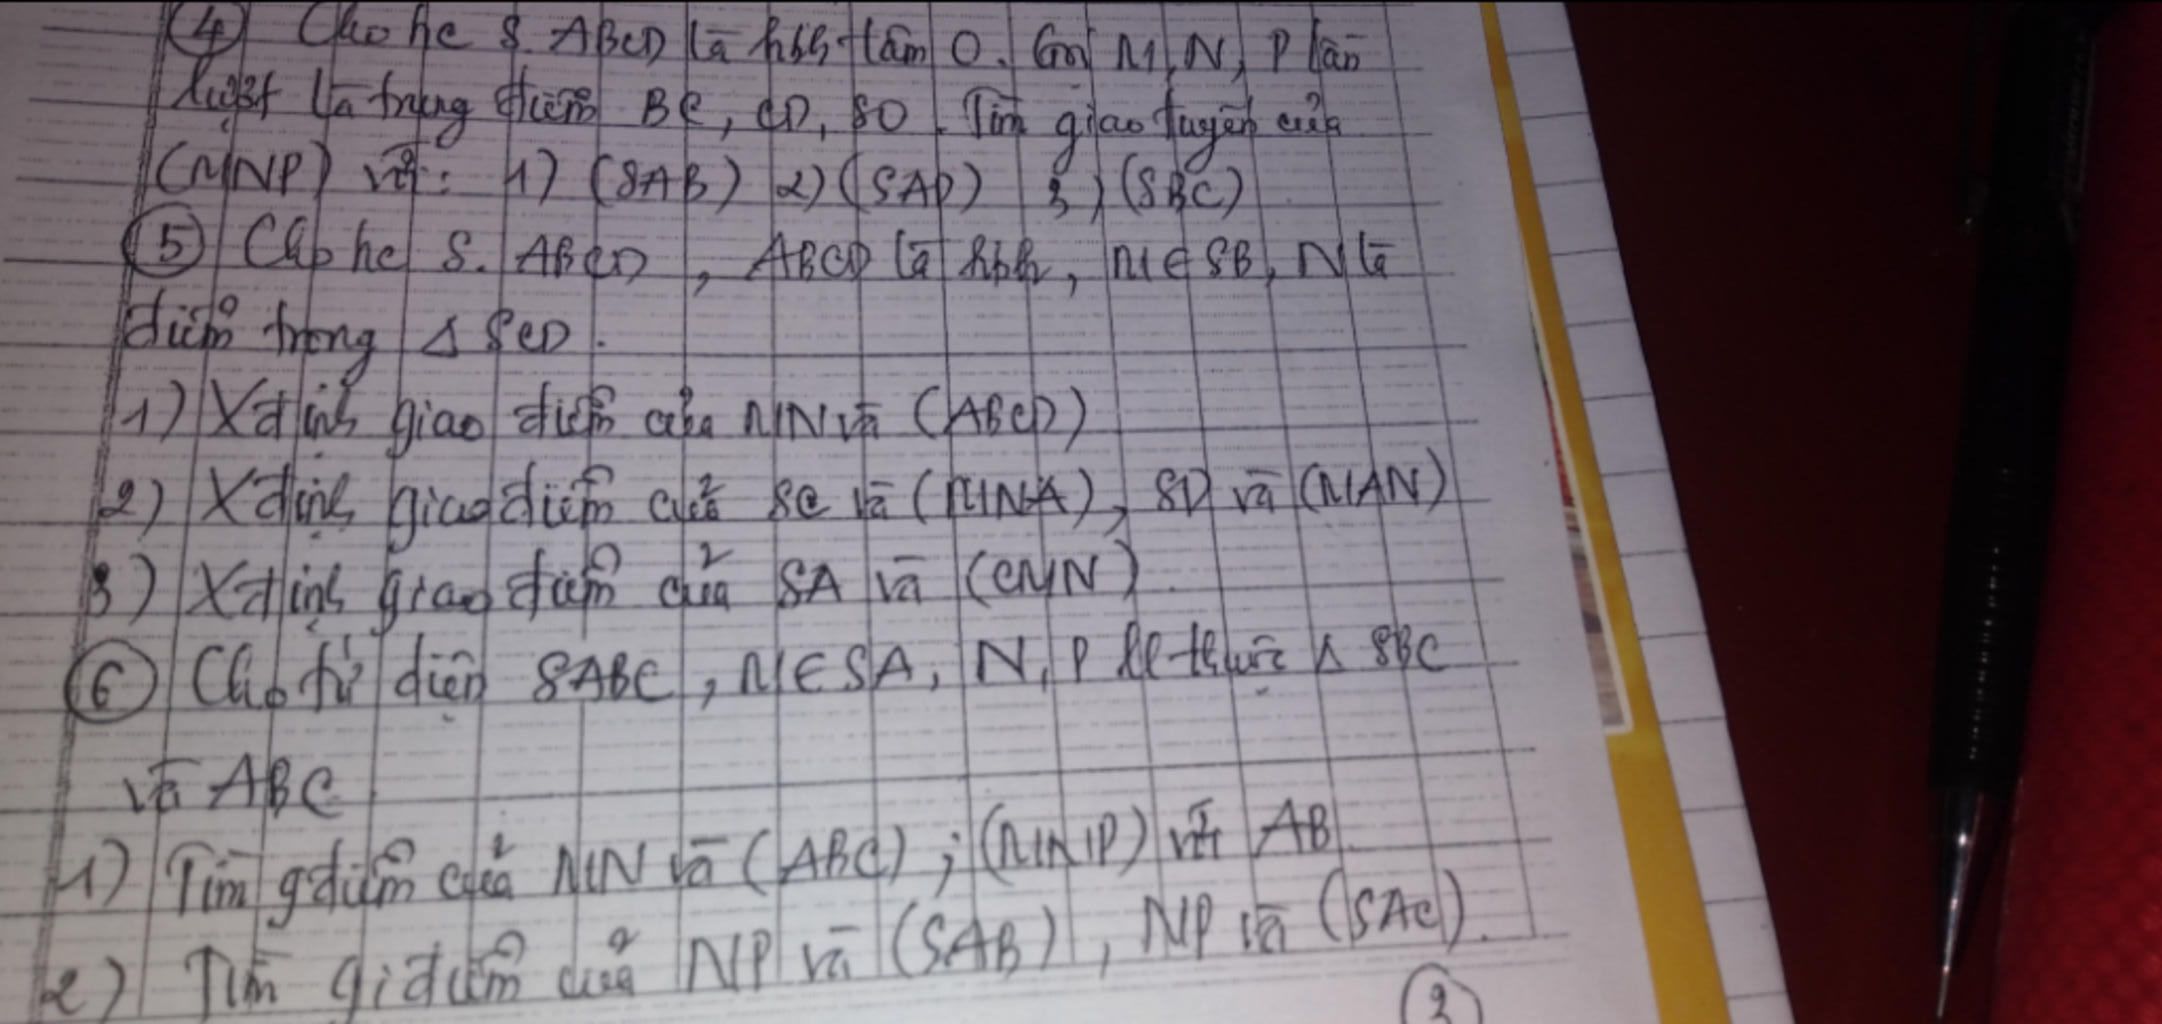 ④ Cho hc S.ABCD là hbh tâm O. Gọi M, N, P lần
lượt là trung điểm BC, CD, SO. Tìm giao tuyến của
(MNP) với: 1) (SAB) 2) (SAD) 3) (SBC)
⑤ Cho hc S.ABCD, ABCD là hbh, M∈SB, N là
điểm trong Δ SCD.
1) Xđịnh giao điểm của MN và (ABCD)
2) Xđịnh giao điểm của SC và (MNA), SD và (MAN)
3) Xđịnh giao điểm của SA và (CMN)
⑥ Cho tứ diện SABC, M∈SA, N, P thuộc Δ SBC
và ABC
1) Tìm gđiểm của MN và (ABC); (MNP) với AB
2) Tìm giđiểm của NP và (SAB), NP và (SAC).
③